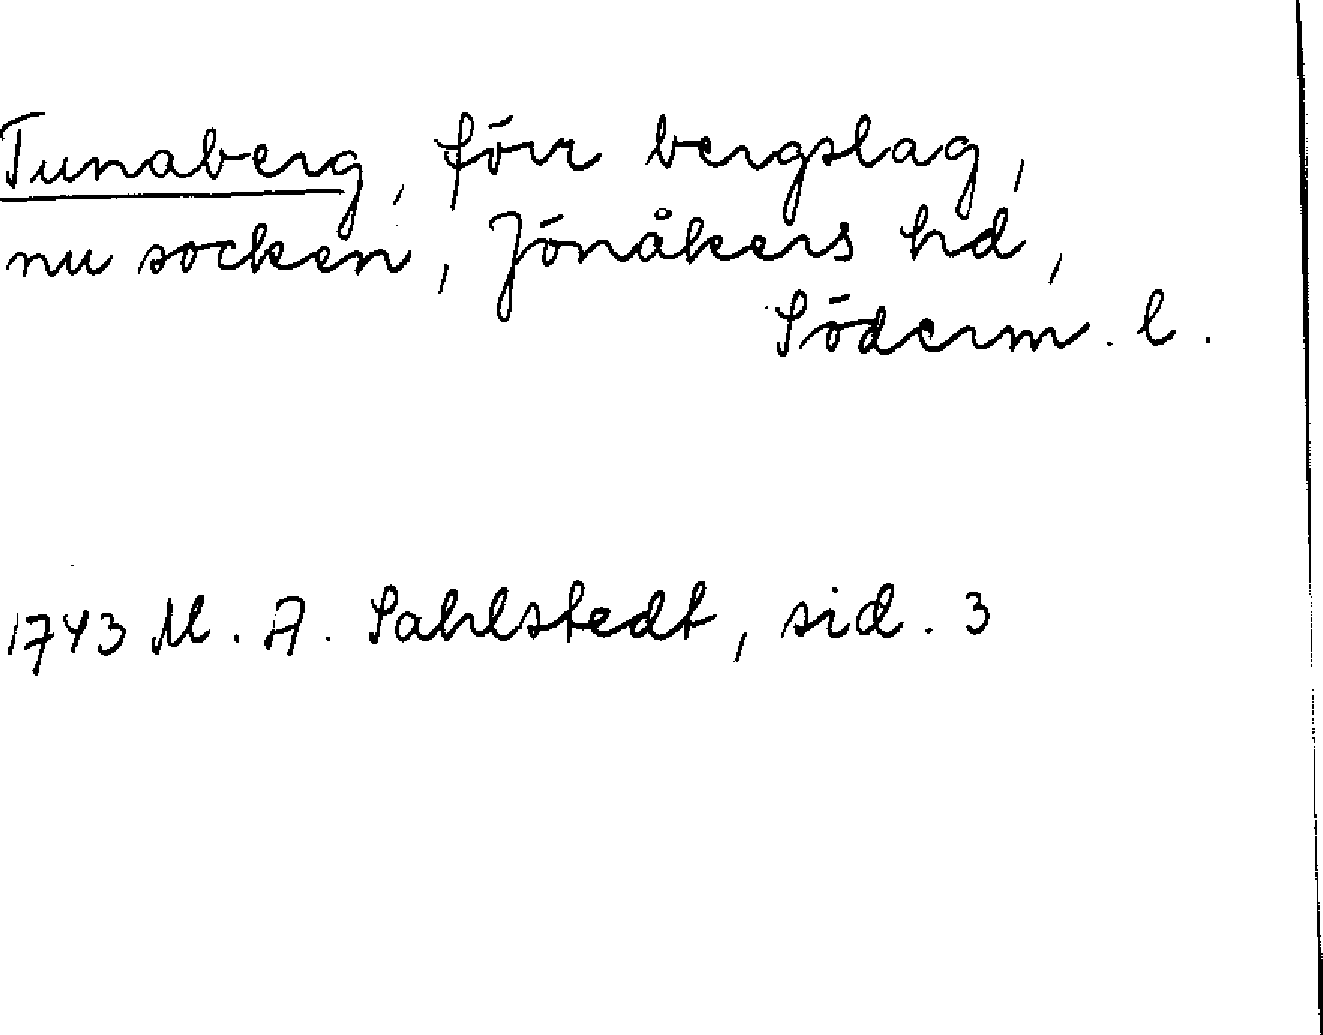 Tunaberg, förr bergslag,
nu socken, Jönåkers hd,
Söderm. l.
1743 M. A. Sahlstedt, sid. 3